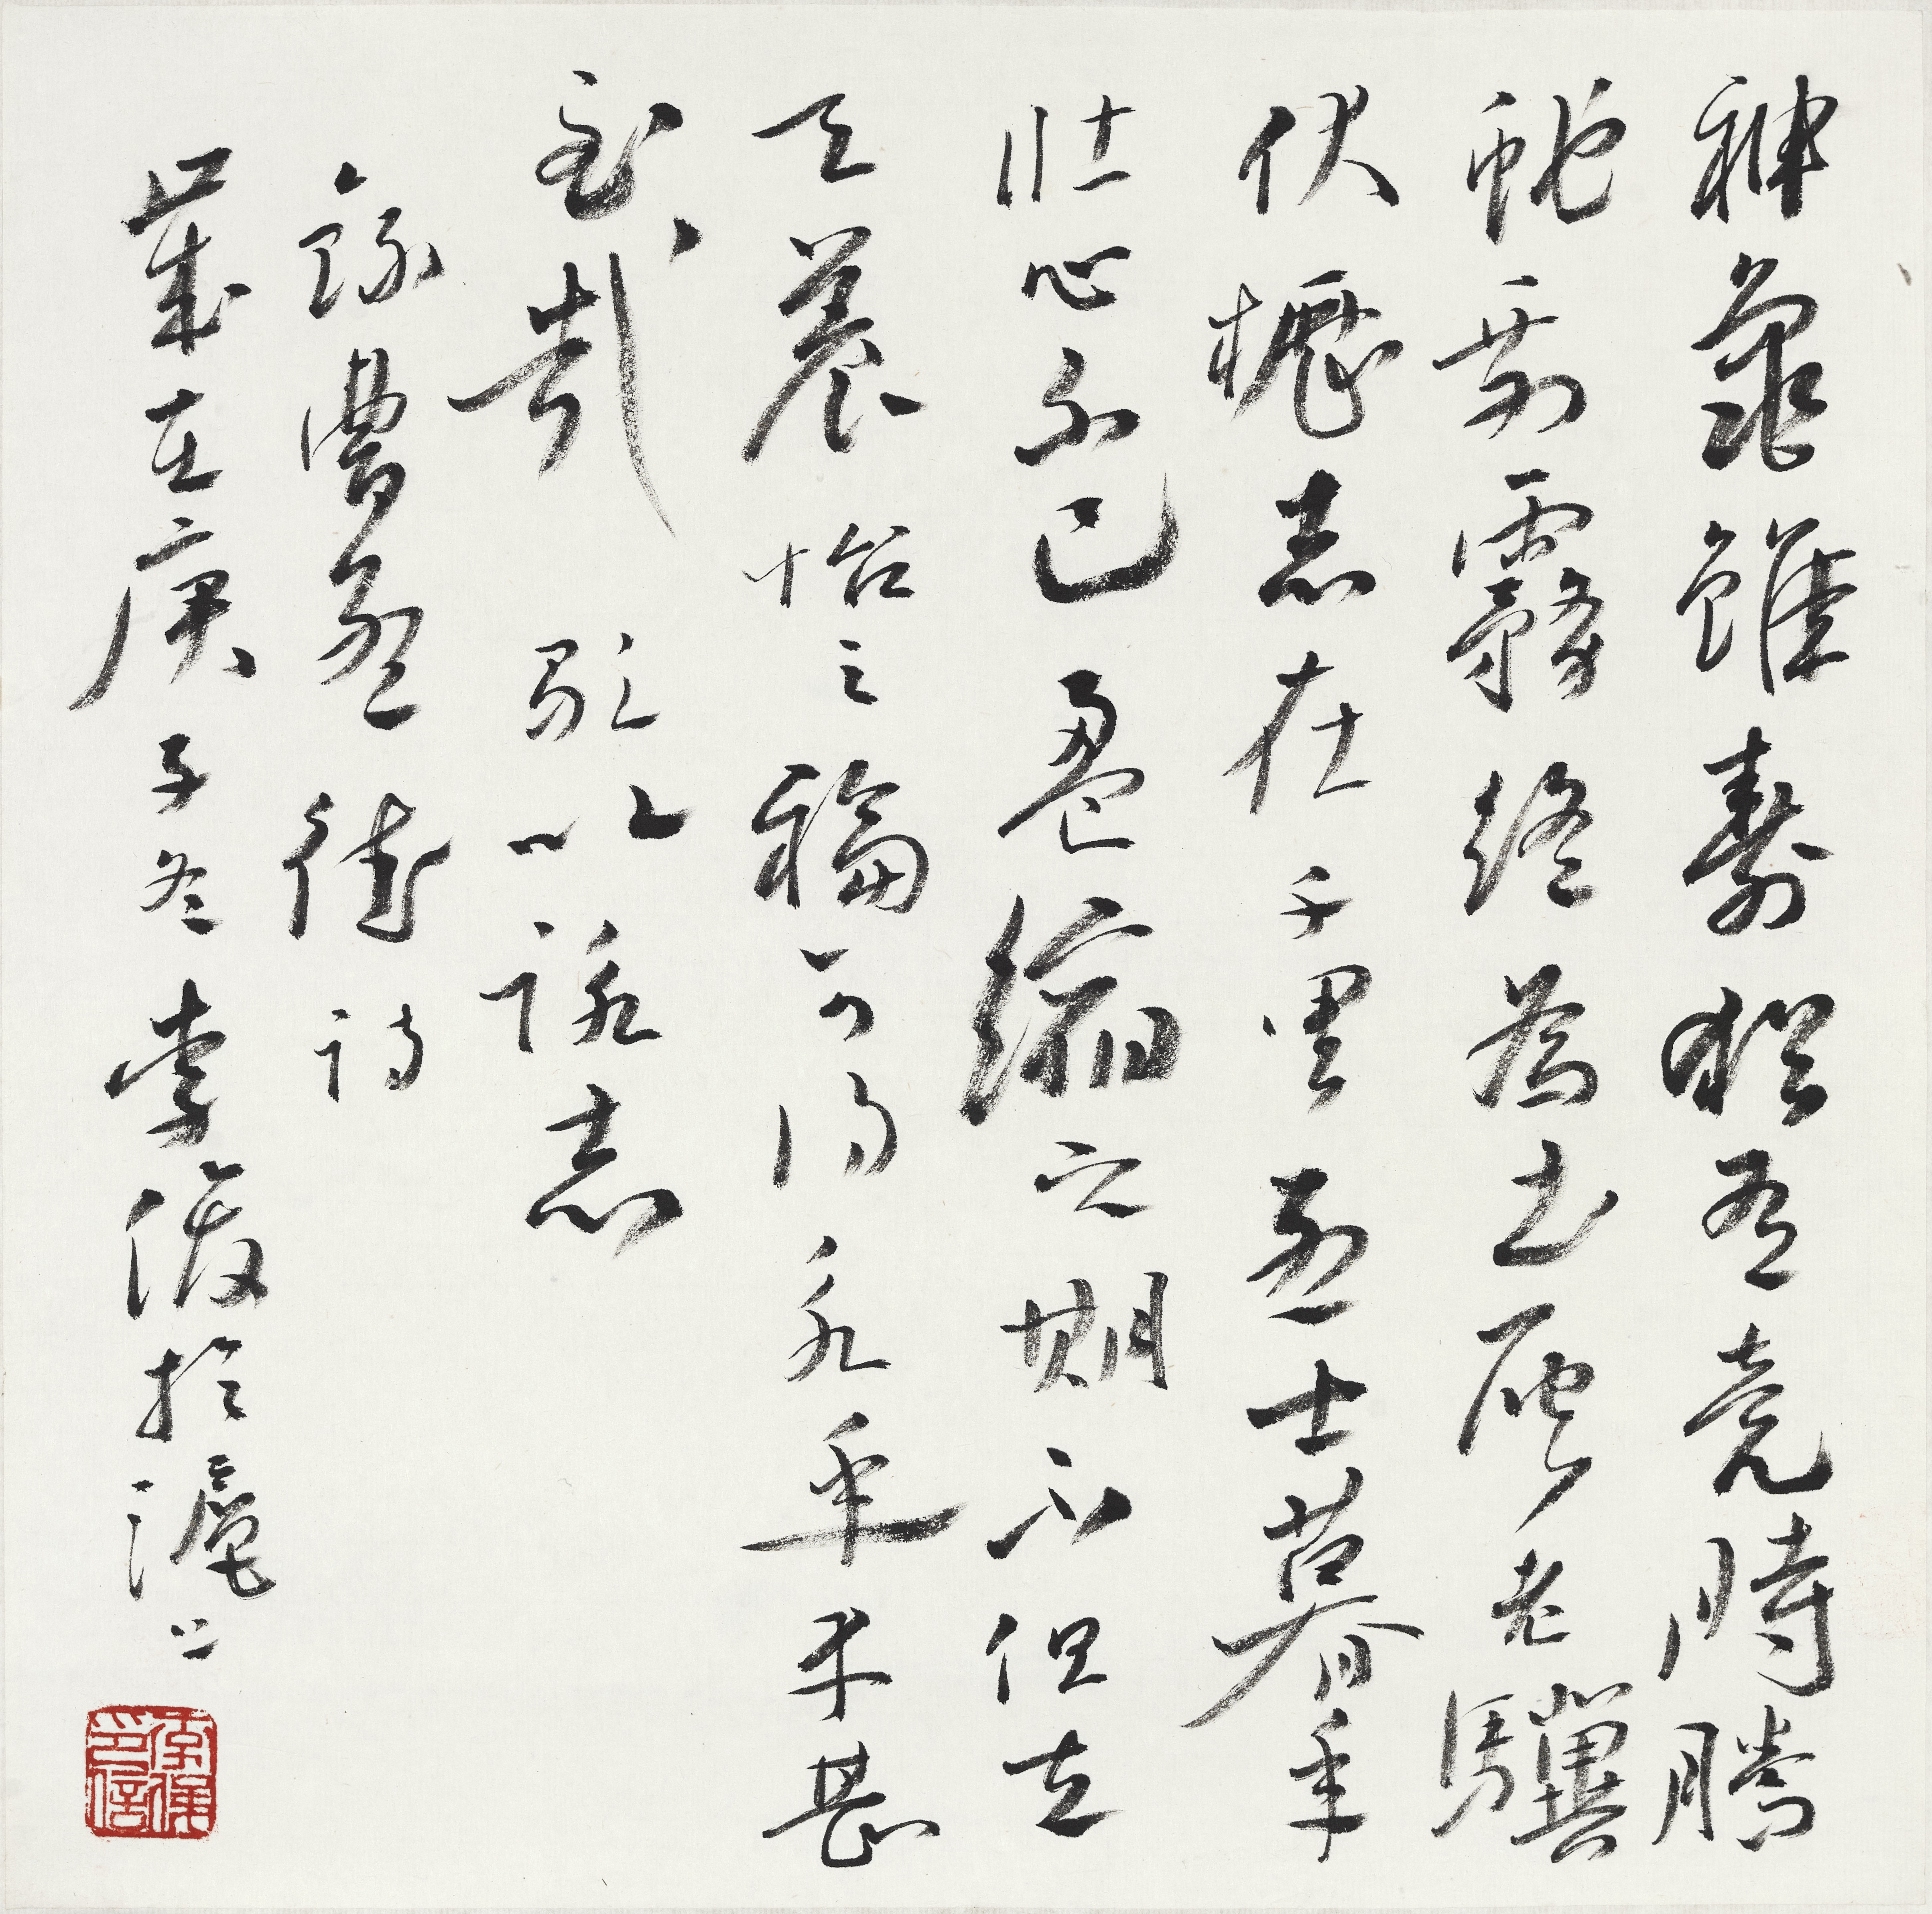 神龜雖壽猶有竟時騰
蛇乘霧終為土灰老驥
伏櫪志在千里烈士暮年
壯心不已盈縮之期不但在
天養怡之福可得永年幸甚
至哉 歌以詠志
錄曹孟德詩
歲在庚子冬李於滬上